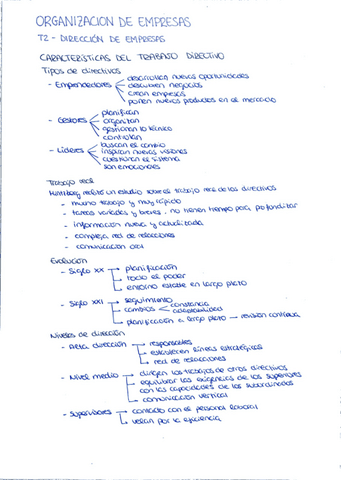 ORGANIZACION DE EMPRESAS
T2 - DIRECCIÓN DE EMPRESAS
CARACTERÍSTICAS DEL TRABAJO DIRECTIVO
Tipos de directivos
- Emprendedores
desarrollan nuevas oportunidades
descubren negocios
crean empresas
ponen nuevos productos en el mercado
- Gestores
planifican
organizan
gestionan lo técnico
controlan
- Líderes
buscan el cambio
inspiran nuevas visiones
cuestionan el sistema
son emocionales
Trabajo real
Mintzberg realizó un estudio sobre el trabajo real de los directivos
- mucho trabajo y muy rápido
- tareas variadas y breves. no tienen tiempo para profundizar
- información nueva y actualizada
- compleja red de relaciones
- comunicación oral
Evolución
- Siglo XX
planificación
todo el poder
entorno estable en largo plazo
- Siglo XXI
seguimiento
cambios
constancia
adaptabilidad
planificación a largo plazo → revisión continua
Niveles de dirección
- Alta dirección
responsables
establecen líneas estratégicas
red de relaciones
- Nivel medio
dirigen los trabajos de otros directivos
equilibrar las exigencias de los superiores
con las capacidades de los subordinados
comunicación vertical
- Supervisores
contacto con el personal laboral
velan por la eficiencia